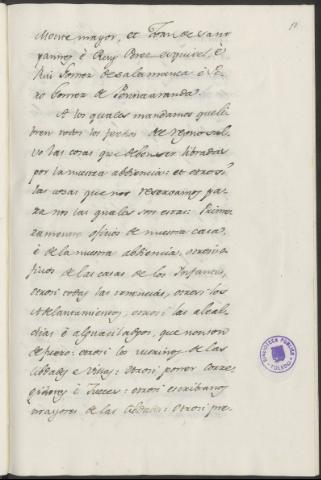 mayor, et Fran. de sant
è Rui Gomez de salamanca è Pe
ro Gomez de Peñaaranda.
A los quales mandamos que li
bren todos los fechos del regno sal
vo las cosas que deben ser libradas
por la nuestra abdiencia: et otrosi
las cosas que nos reservamos pa
ra nos las quales son estas: Prime
ramente oficios de nuestra casa,
è de la nuestra abdiencia, otrosi o
ficios de las casas de los Infantes,
otrosi todas las tenencias, otrosi los
adelantamientos, otrosi las alcal
dias è alguacilasgos, que non son
de fuero: otrosi los merinos de las
cibdades è villas: otrosi poner corre
gidores è Jueces: otrosi escribanos
mayores de las cibdades: otrosi pre
BIBLIOTECA PUBLICA
TOLEDO